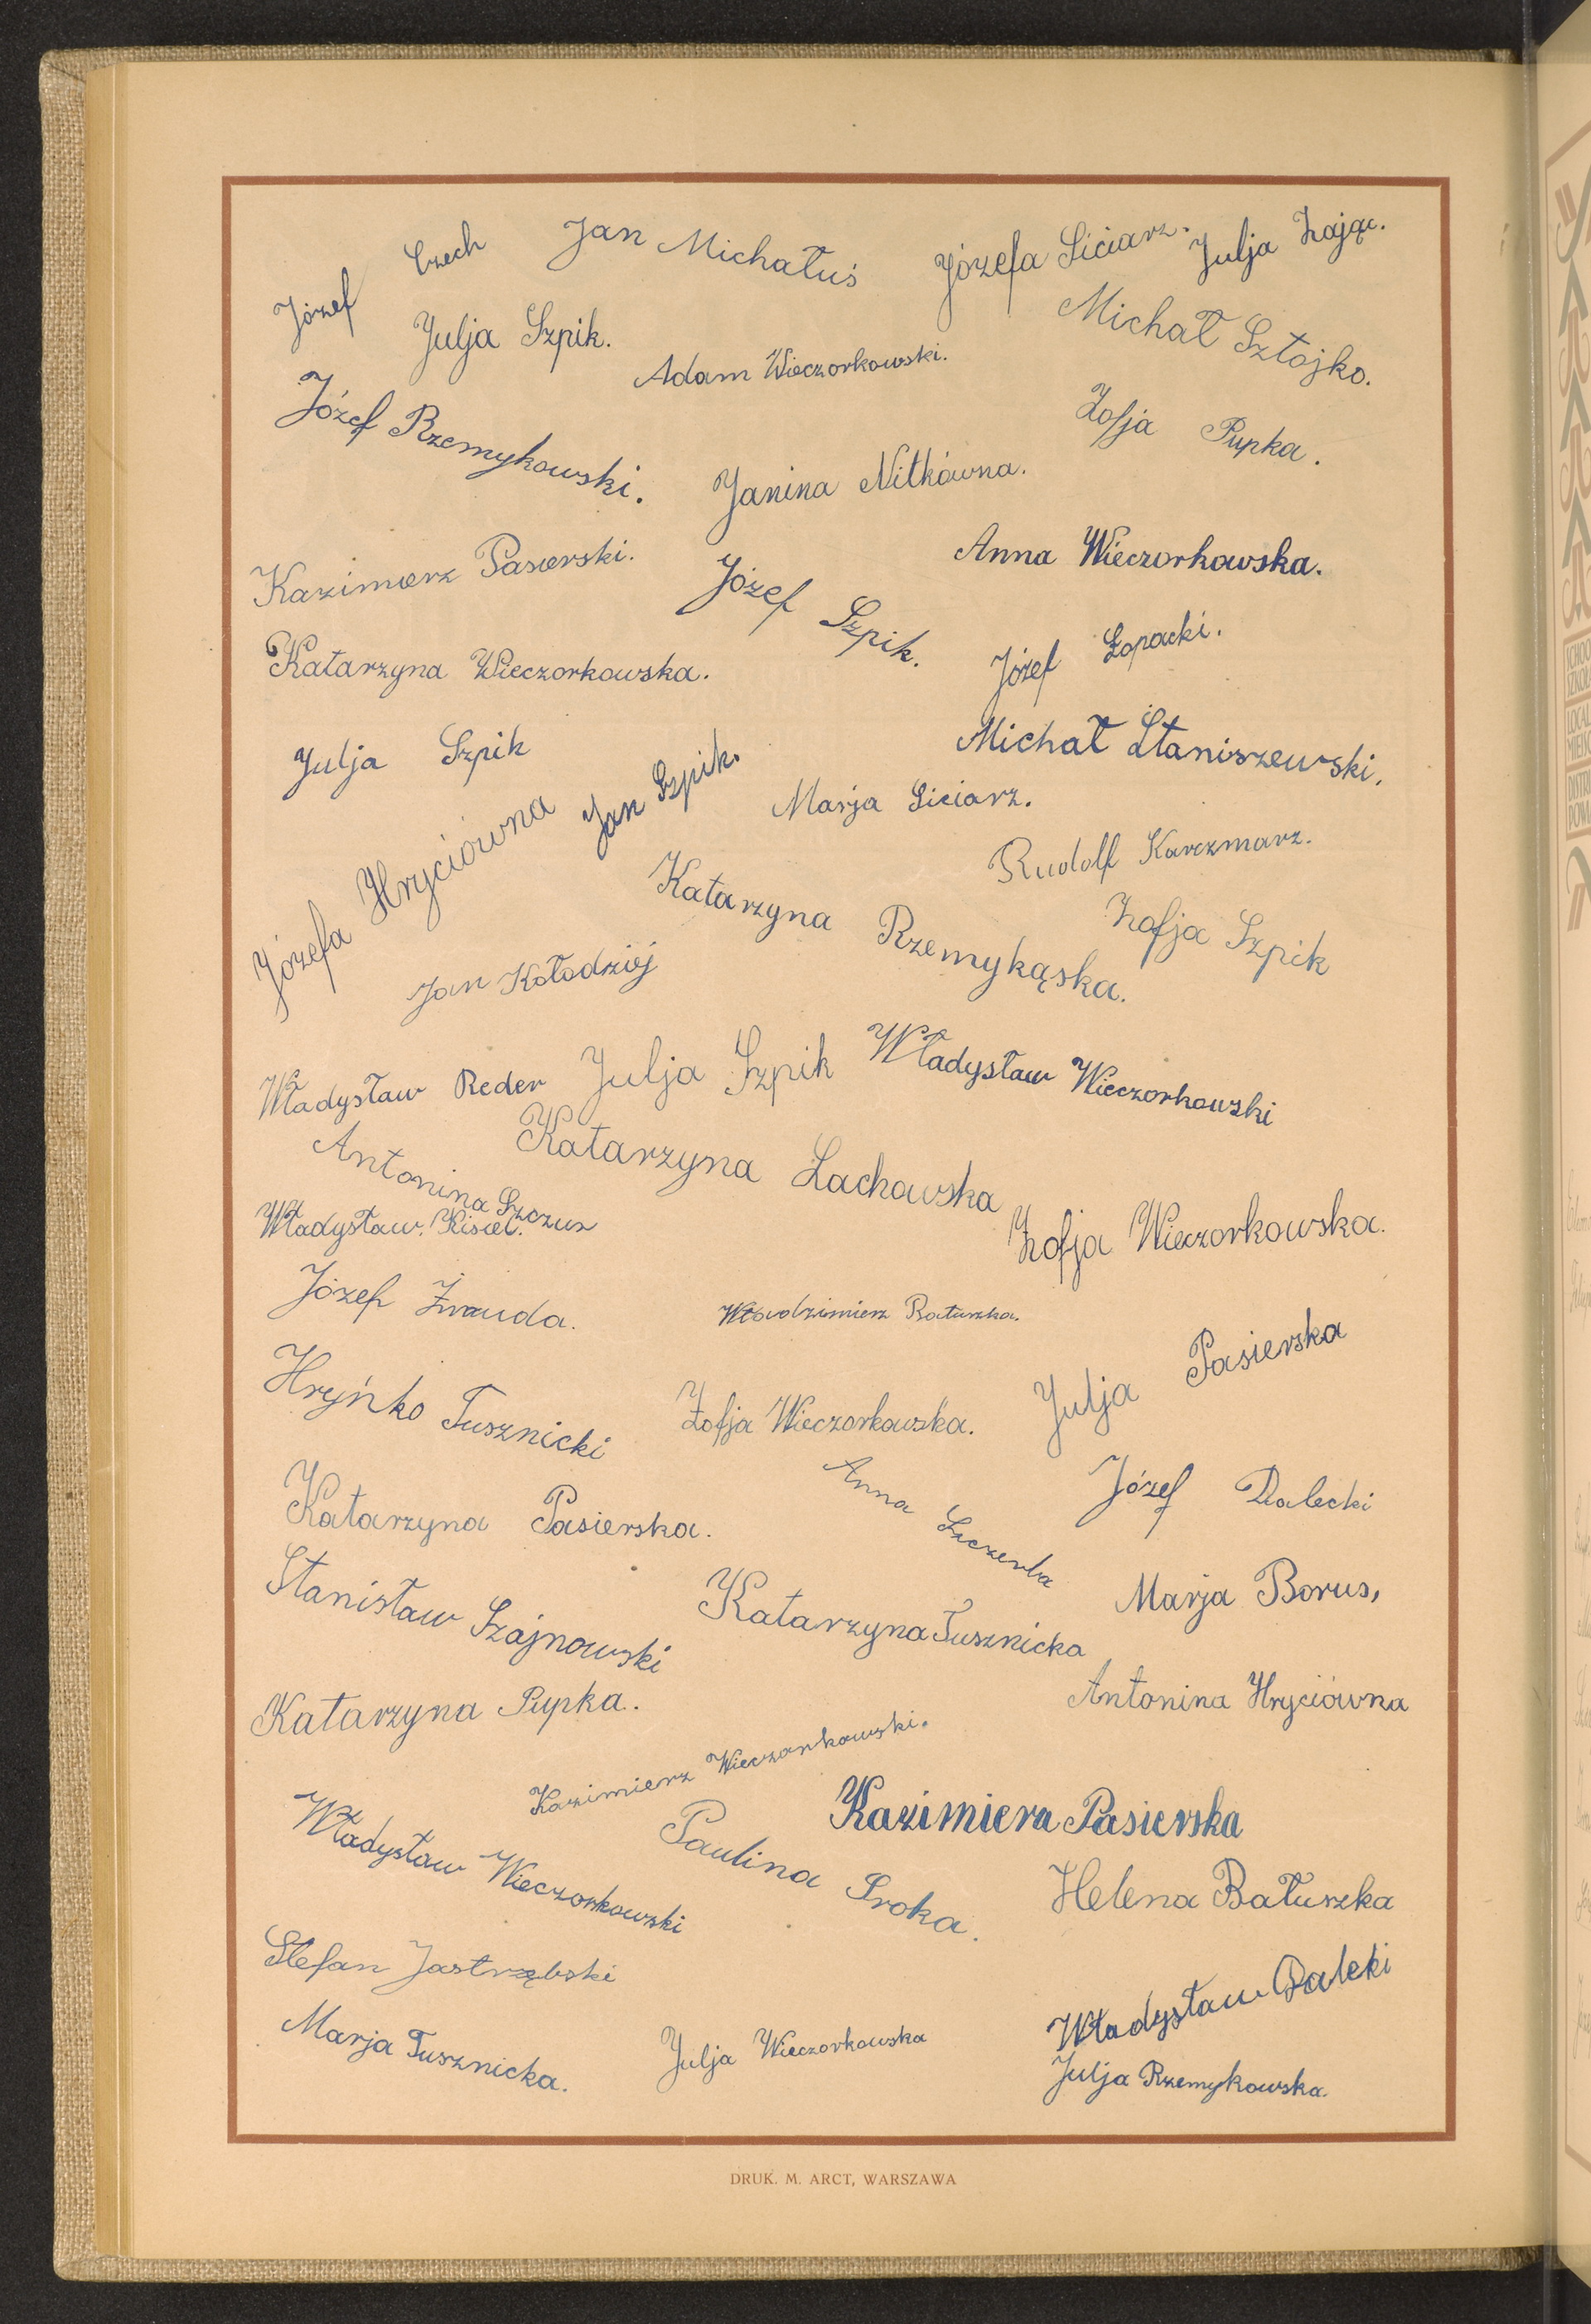 Józef Czech
Jan Michałuś
Józefa Siciarz.
Julja Zając.
Julja Szpik.
Adam Wieczorkowski.
Michał Sztojko.
Józef Rzemykowski.
Janina Nitkówna.
Zofja Pupka.
Kazimierz Pasierski.
Józef Szpik.
Anna Wieczorkowska.
Katarzyna Wieczorkowska.
Józef Łopacki.
Julja Szpik
Jan Szpik.
Michał Staniszewski.
Marja Siciarz.
Józefa Hryciówna
Rudolf Karczmarz.
Katarzyna Rzemykąska.
Zofja Szpik
Jan Kołodziéj
Władysław Reder
Julja Szpik
Władysław Wieczorkowski
Antonina Szczur
Katarzyna Lachowska
Władysław. Kisiel.
Zofja Wieczorkowska.
Józef
Włodzimierz Batuszka.
Hryńko Tusznicki
Zofja Wieczorkowska.
Julja Pasierska
Katarzyna Pasierska.
Anna Szczerba
Józef Dalecki
Stanisław Szajnowski
Katarzyna Tusznicka
Marja Borus,
Katarzyna Pupka.
Antonina Hryciówna
Kazimierz Wieczorkowski.
Kazimiera Pasierska
Władysław Wieczorkowski
Paulina Sroka.
Helena Batuszka
Stefan Jastrzębski
Władysław Daleki
Marja Tusznicka.
Julja Wieczorkowska
Julja Rzemykowska.
DRUK. M. ARCT, WARSZAWA